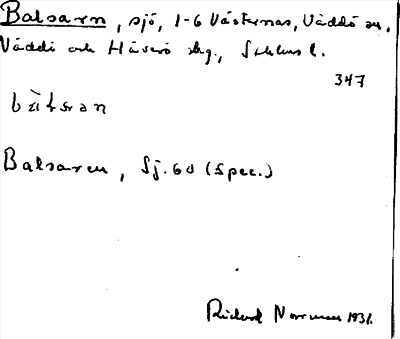 Balsarn, sjö, 1-6 Västernäs, Väddö sn,
Väddö och Häverö skg., Sthlms l.
347
bàlsran
Balsaren, Sj. 60 (Spec.)
Rickard Norrman 1931.